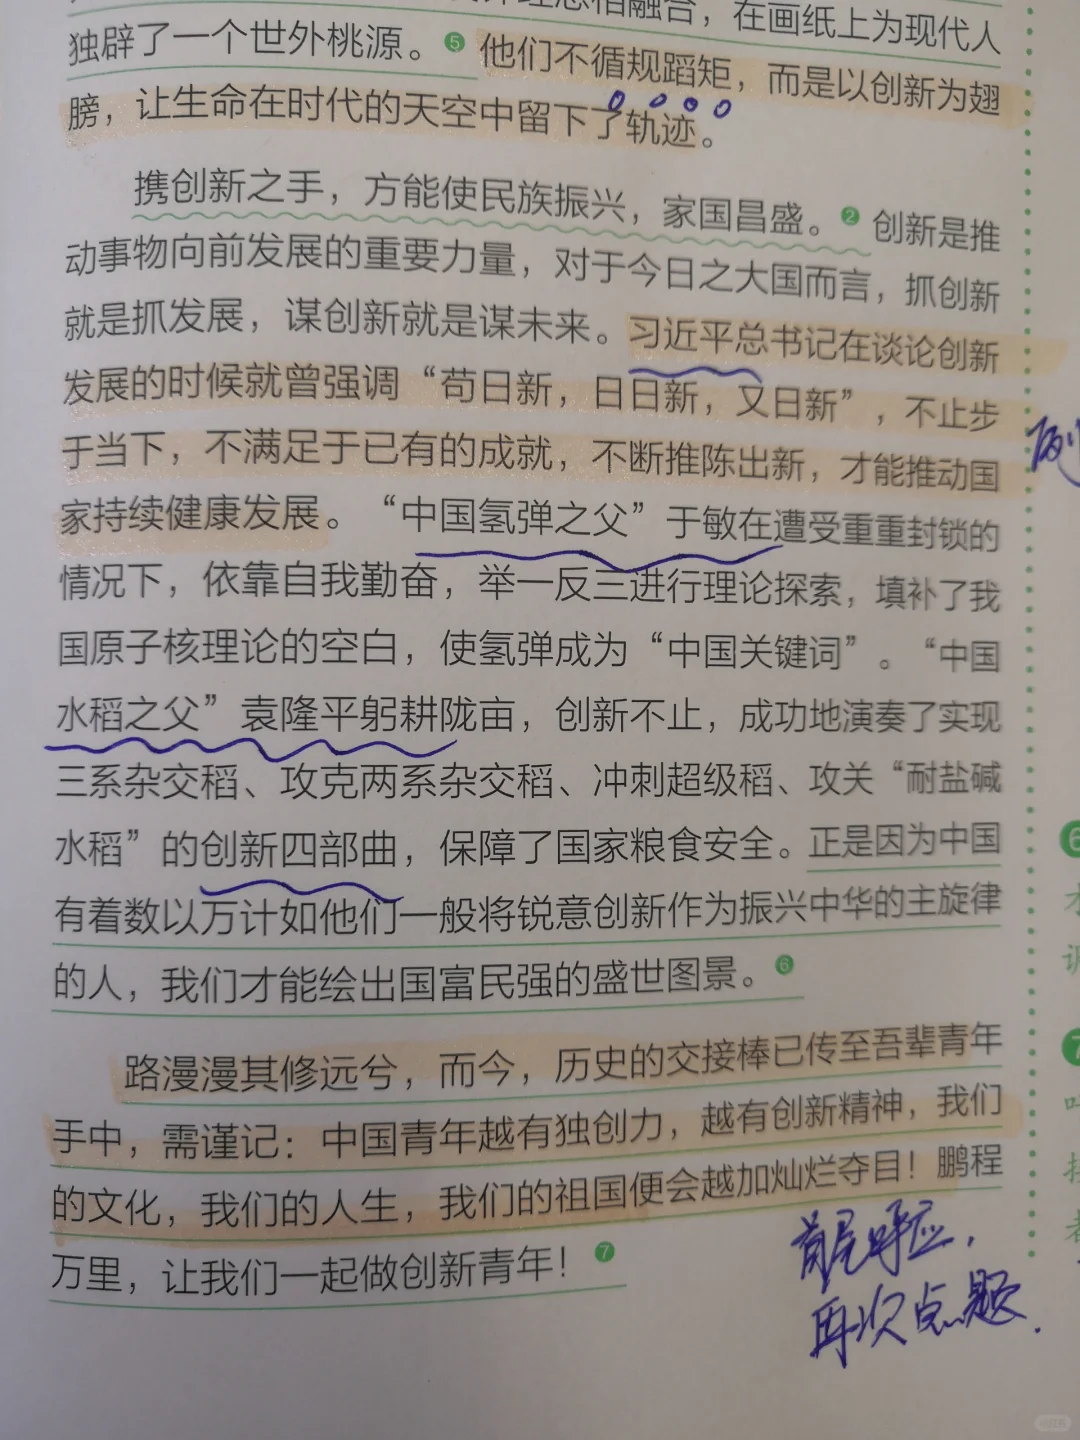 计理念相融合，在画纸上为现代人
独辟了一个世外桃源。5他们不循规蹈矩，而是以创新为翅
膀，让生命在时代的天空中留下了轨迹。
携创新之手，方能使民族振兴，家国昌盛。2创新是推
动事物向前发展的重要力量，对于今日之大国而言，抓创新
就是抓发展，谋创新就是谋未来。习近平总书记在谈论创新
发展的时候就曾强调“苟日新，日日新，又日新”，不止步
于当下，不满足于已有的成就，不断推陈出新，才能推动国
例
家持续健康发展。“中国氢弹之父”于敏在遭受重重封锁的
情况下，依靠自我勤奋，举一反三进行理论探索，填补了我
国原子核理论的空白，使氢弹成为“中国关键词”。“中国
水稻之父”袁隆平躬耕陇亩，创新不止，成功地演奏了实现
三系杂交稻、攻克两系杂交稻、冲刺超级稻、攻关“耐盐碱
水稻”的创新四部曲，保障了国家粮食安全。正是因为中国
有着数以万计如他们一般将锐意创新作为振兴中华的主旋律
的人，我们才能绘出国富民强的盛世图景。6
路漫漫其修远兮，而今，历史的交接棒已传至吾辈青年
手中，需谨记：中国青年越有独创力，越有创新精神，我们
的文化，我们的人生，我们的祖国便会越加灿烂夺目！鹏程
万里，让我们一起做创新青年！7
首尾呼应，
再次点题.
6
7